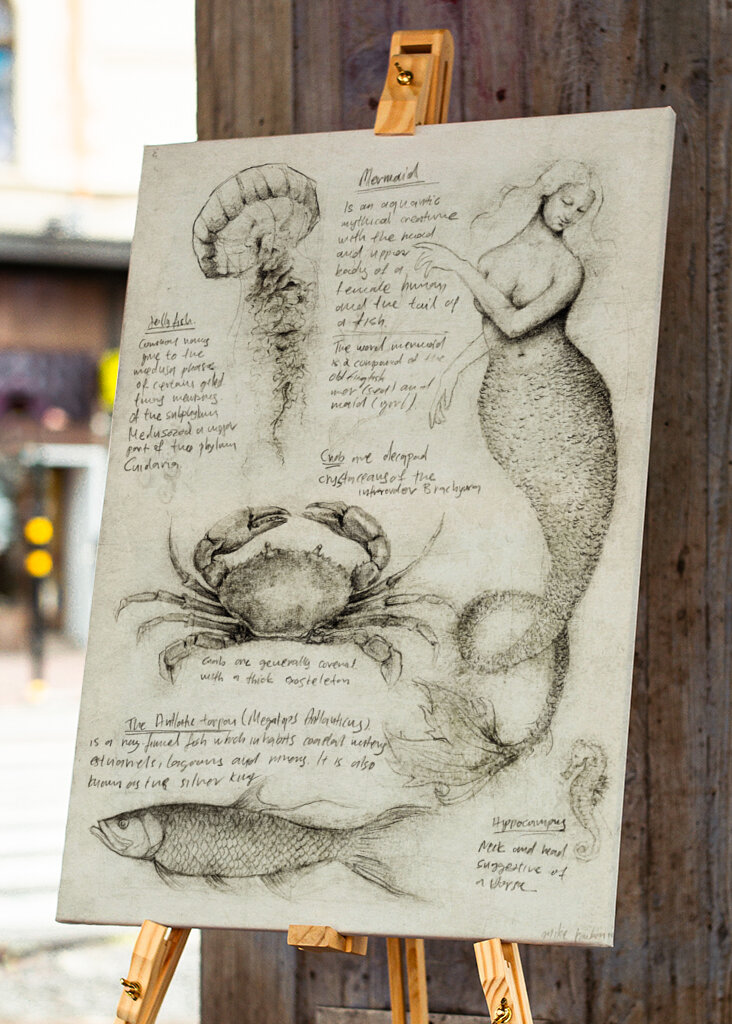 Mermaid
Is an aquatic
mythical creature
with the head
and upper
body of a
female human
and the tail of
a fish
The word mermaid
is a compound of the
old english
mer (sea) and
maid (girl).
Jellyfish
Common name
give to the
medusa phase
of certain gelat
living members
of the subphylum
Medusozoa a major
part of the phylum
Cnidaria
Crab are decapod
crystaceans of the
infraorder Brachyura
Crab are generally covered
with a thick exosteleton
The Atlantic tarpon (Megalops Atlanticus)
is a ray finned fish which inhabits coastal waters
estuaries, lagoons and rivers. It is also
known as the silver king
Hippocampus
Neck and head
suggestive of
a Horse
Mike